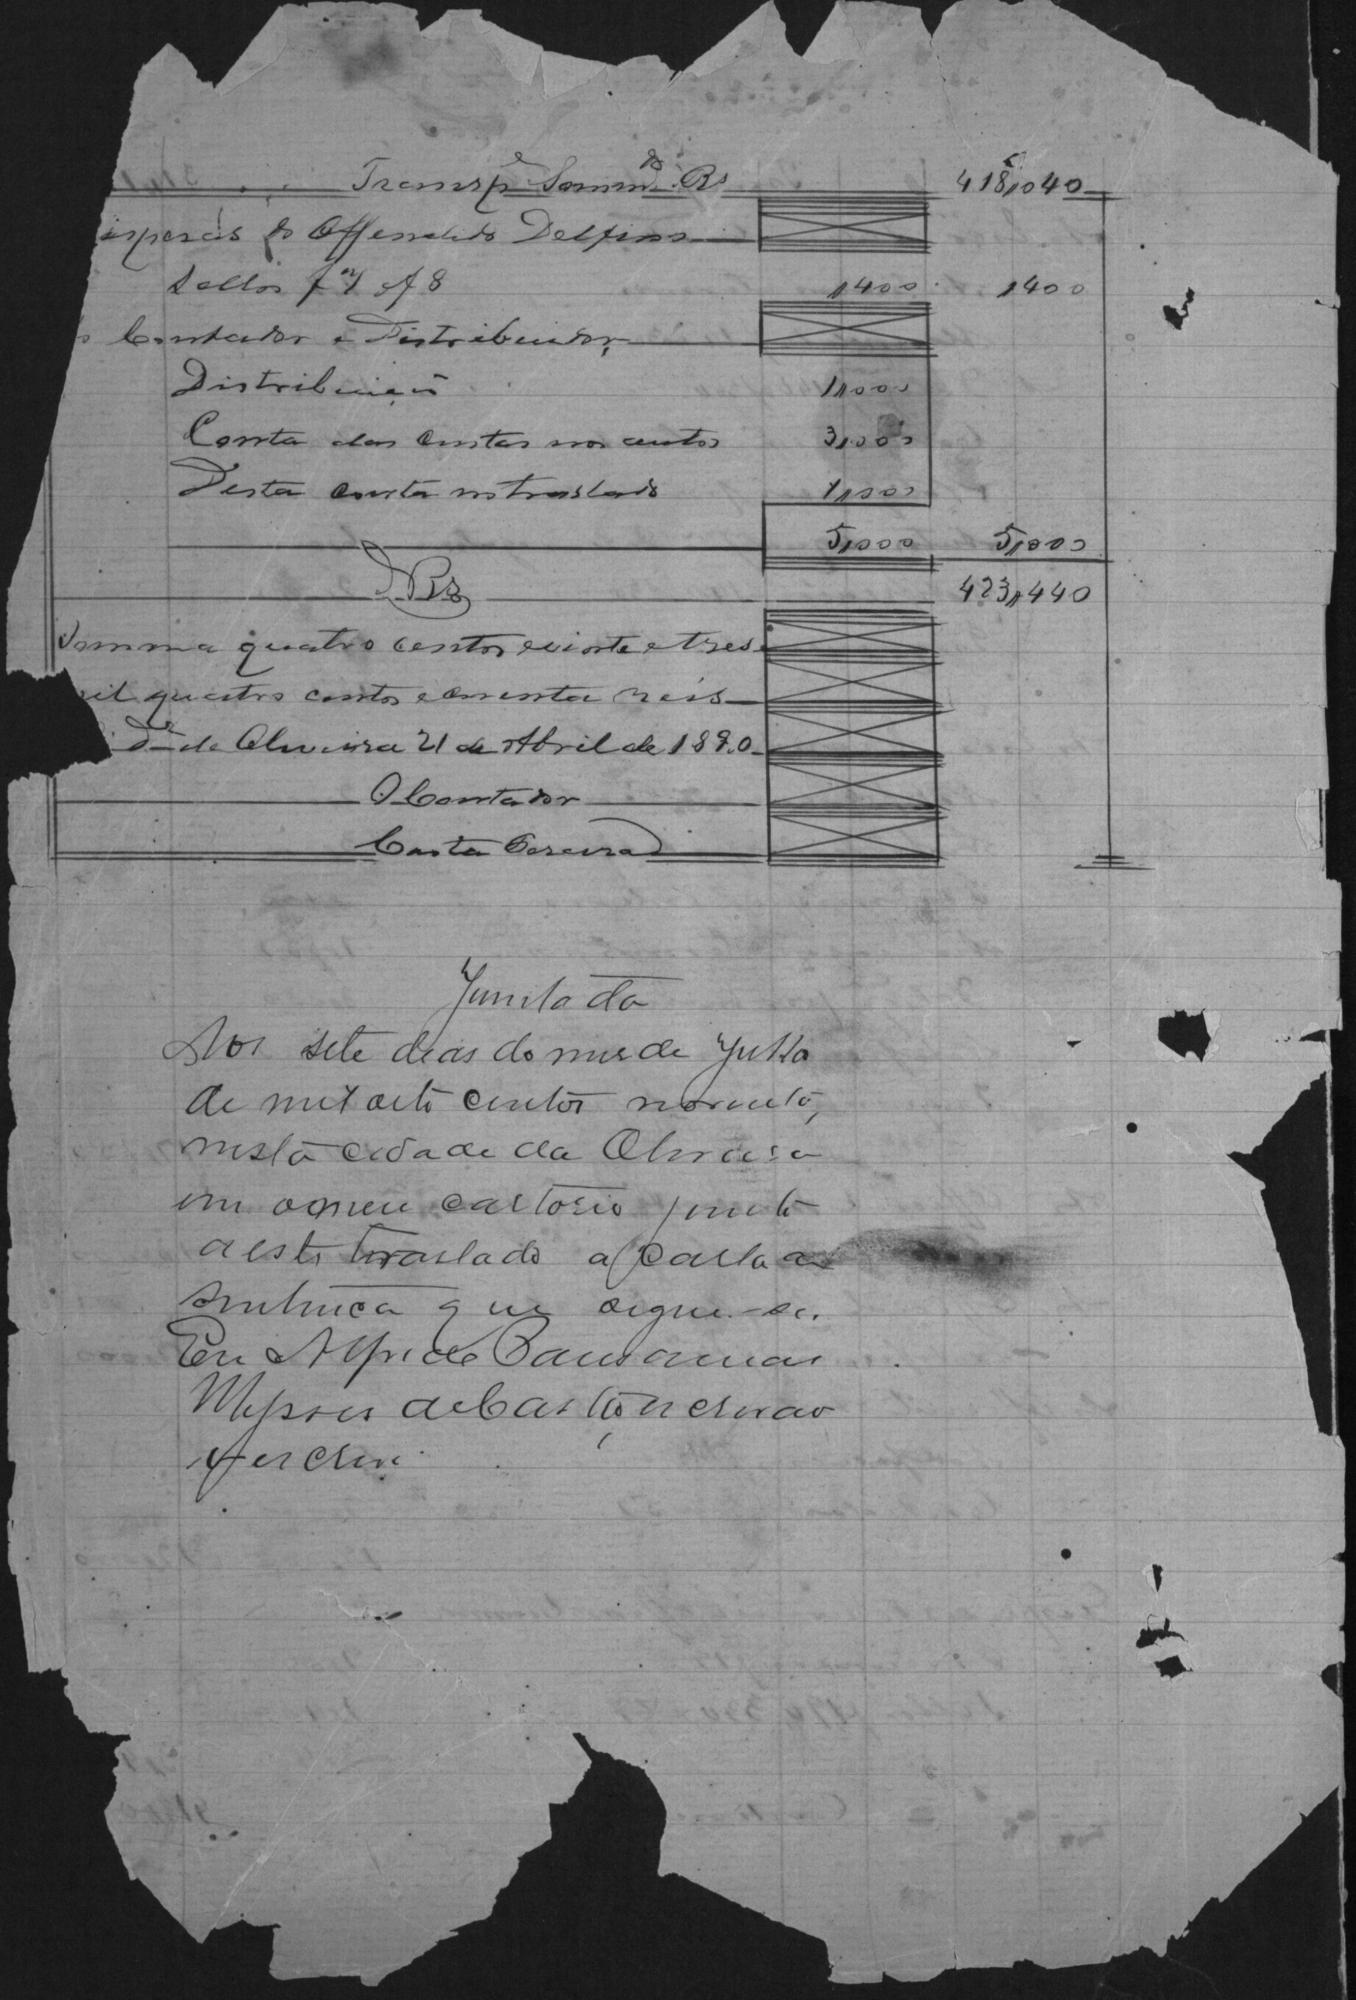 Transpe Sommdo Rs 418,040
espesas do Offendido Delfino
Sellos fs 8 1400 1400
o Contador e Distribuidor
Distribuição 1,000
Conta das custas nos autos 3,000
Desta conta no traslado 1,000
5,000 5,000
Rs 423,440
Somma quatro centos e vinte e tres
mil quatro centos e corenta reis
de Oliveira 21 de Abril de 1890
O Contador
Costa Pereira
Juntada
Aos sete dias do mes de Julho
de mil oito centos noventa,
nesta cidade da Oliveira
em o meu cartorio junto
a este traslado a carta de
sentença que segue-se.
Eu Alfredo Pausanias
Ulysses de Castro, escrivão
q escrevi.